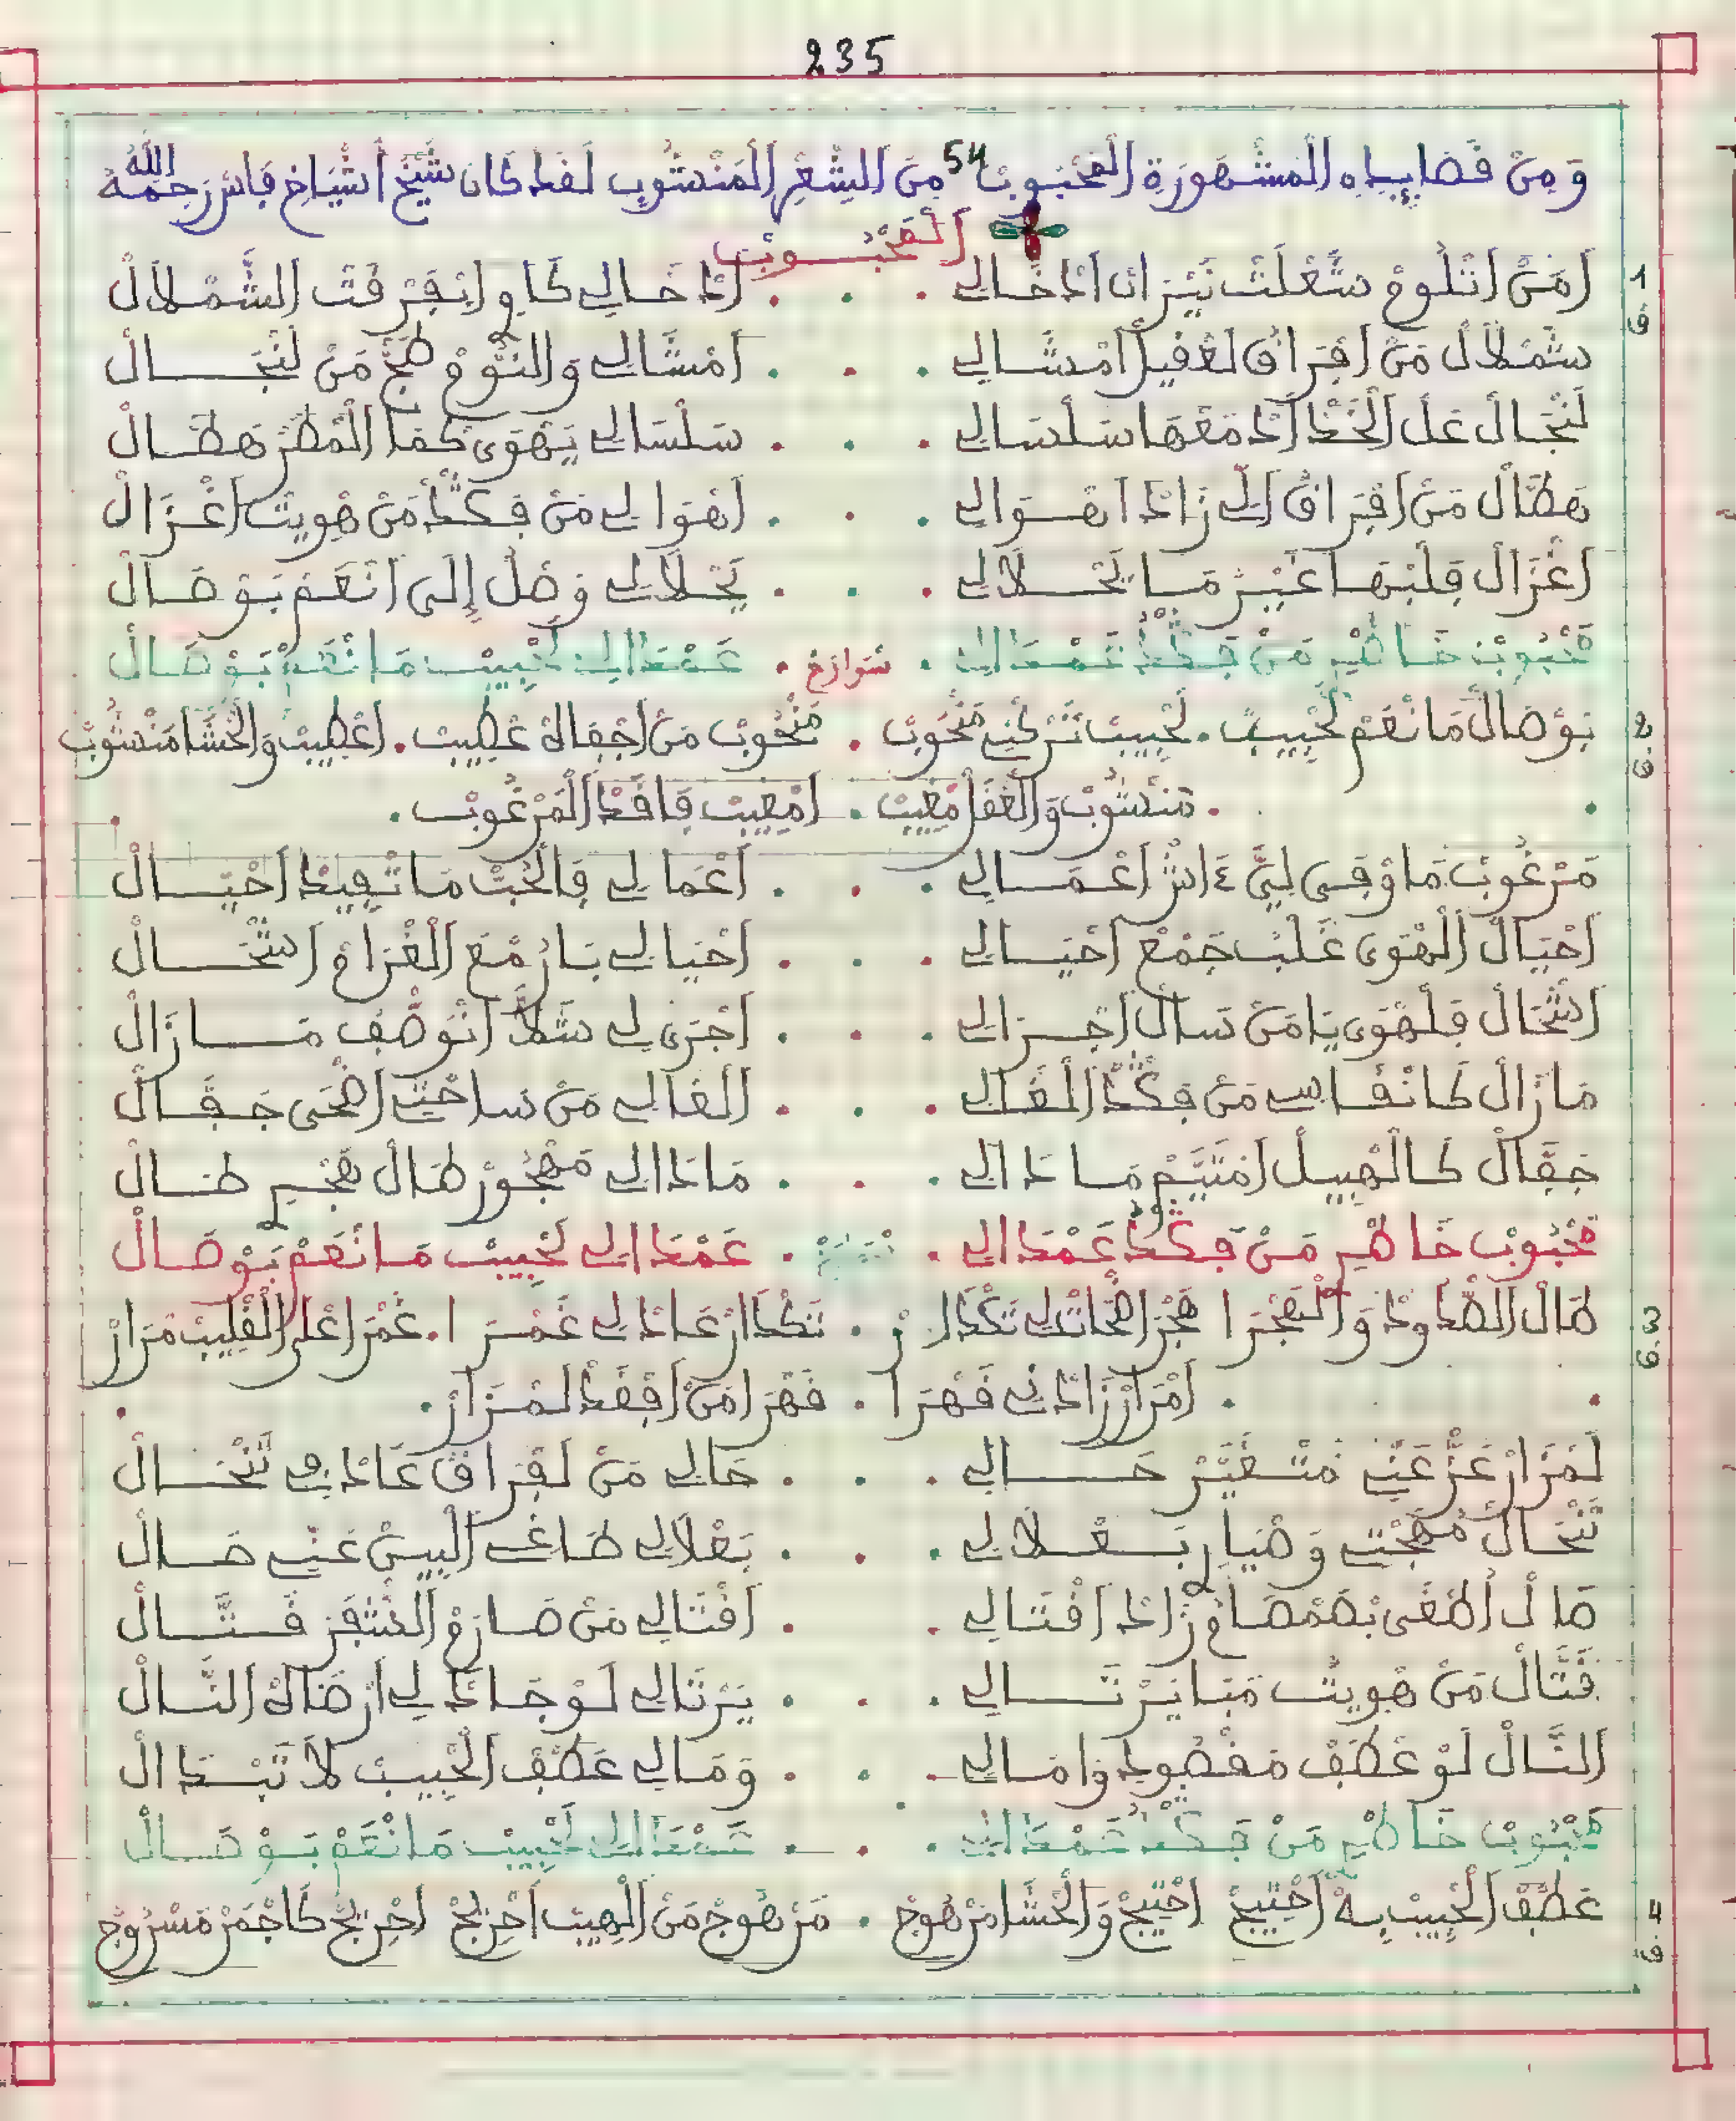 235
وَمِنْ قَصَايِدِهِ الْمَشْهُورَةِ الْمَحْبُوبْ 54 مِنَ الشِّعْرِ الْمَنْسُوبِ لَقَدْ كَانَ شَيْخْ أَشْيَاخِ فَاسْ رَحِمَهُ اللَّهُ
الْمَحْبُوبْ
1 ق
اَمَنْ اتْلُومْ شَعْلَتْ نَيْرَانْ ادْخَالِي . . . ادْخَالِي كَاوِ ابْفَرْقَتْ الشَّمْلَالْ
شَمْلَالْ مَنْ افْرَاقْ لَعْقِيلْ امْشَالِي . . . امْشَالِي وَالنُّوْمْ طَجّْ مَنْ لَنْجَالْ
لَنْجَالْ عَلَ الْخَدّْ ادْمَعْهَا سَلْسَالِي . . . سَلْسَالِي يَهْوَى كَمَا الْمُطَرْ هَطَّالْ
هَطَّالْ مَنْ افْرَاقْ الِّي زَادْ اهْوَالِي . . . اهْوَالِي مَنْ فَكْدْ مَنْ هْوِيتْ اغْزَالْ
اغْزَالْ قَلْبْهَا غَيْرْ مَا يَحْلَالِي . . . يَحْلَالِي وَصْلُ إِلَى انْعَمْ بَوْصَالْ
مَحْبُوبْ خَاطْرِي مَنْ فَكْدُ عَمْدَالِي . شوارم . عَمْدَالِي لَحْبِيبْ مَا نْعَمْ بَوْصَالْ
2 ق
بَوْصَالْ مَا نْعَمْ لَحْبِيبْ . لَحْبِيبْ تَرْكْنِي مَنْحُوبْ . مَنْحُوبْ مَنْ اجْفَاهْ عْطِيبْ . اعْطِيبْ وَالْحْشَا مَنْشُوبْ
. مَنْشُوبْ وَالْعْقَلْ مْغِيبْ . امْغِيبْ فَاقْدْ الْمَرْغُوبْ .
مَرْغُوبْ مَا وْفَى لِيَّ ءَاشْ اعْمَالِي . . . اعْمَالِي فَالْحُبّْ مَا تْفِيدْ احْيَالْ
احْيَالْ الْهْوَى غَلْبْ جَمْعْ احْيَالِي . . . احْيَالِي بَارُ مْعَ الْغْرَامْ اشْحَالْ
اشْحَالْ فَلْهْوَى يَا مَنْ سَالْ اجْرَالِي . . . اجْرَى لِي شَلَّا انْوَصَّفْ مَازَالْ
مَازَالْ كَانْقَاسِي مَنْ فَكْدْ الْغَالِي . . . الْغَالِي مَنْ سَاحْتِي اضْحَى جَفَّالْ
جَفَّالْ كَالْهْبِيلْ امْتَيَّمْ مَادَالِي . . . مَادَالِي مَهْجُورْ طَالْ هَجْرِي طَالْ
مَحْبُوبْ خَاطْرِي مَنْ فَكْدُ عَمْدَالِي . . عَمْدَالِي لَحْبِيبْ مَا نْعَمْ بَوْصَالْ
3 ق
طَالْ الصّْدُودْ وَالْهَجْرَا هَجْرْ اضْحَاتْلِي تَكْدَارْ . تَكْدَارْ عَادْلِي غَمْرَا . غَمْرَا عْلَى الْقْلِيبْ مْرَارْ
. امْرَارْ زَادْنِي قَهْرَا . قَهْرَا مَنْ افْقَدْ لَمْزَارْ .
لَمْزَارْ عَزّْ عَنِّي مَتْغَيَّرْ حَالِي . . . حَالِي مَنْ لَفْرَاقْ عَادْ فِي تَنْحَالْ
تَنْحَالْ مُهْجْتِي وَضْيَا رَبْعْلَالِي . . . بَعْلَالِي طَاغِي الْبِينْ عَنِّي صَالْ
صَالْ اطْغَى بْصَمْصَامْ زَادْ اقْتَالِي . . اقْتَالِي مَنْ صَارَمْ الشّْفَرْ قَتَّالْ
قَتَّالْ مَنْ هْوِيتْ مَنَا يَرْثَالِي . . . يَرْثَالِي لَوْ جَادْ لِي ارْضَاهْ النَّالْ
النَّالْ لَوْ عْطَفْ مَقْصُودِ وَامَالِي . . . وَمَالِي عَطْفْ الْحْبِيبْ لَا تَبْدَالْ
مَحْبُوبْ خَاطْرِي مَنْ فَكْدُ عَمْدَالِي . . . عَمْدَالِي لَحْبِيبْ مَا نْعَمْ بَوْصَالْ
4 ق
عَطْفْ الْحْبِيبْ بِهْ احْتِيجْ احْتِيجْ وَالْحْشَا مَرْهُوجْ . مَرْهُوجْ مَنْ الْهِيبْ احْرِيجْ احْرِيجْ كَاجْمَرْ مَسْرُوجْ